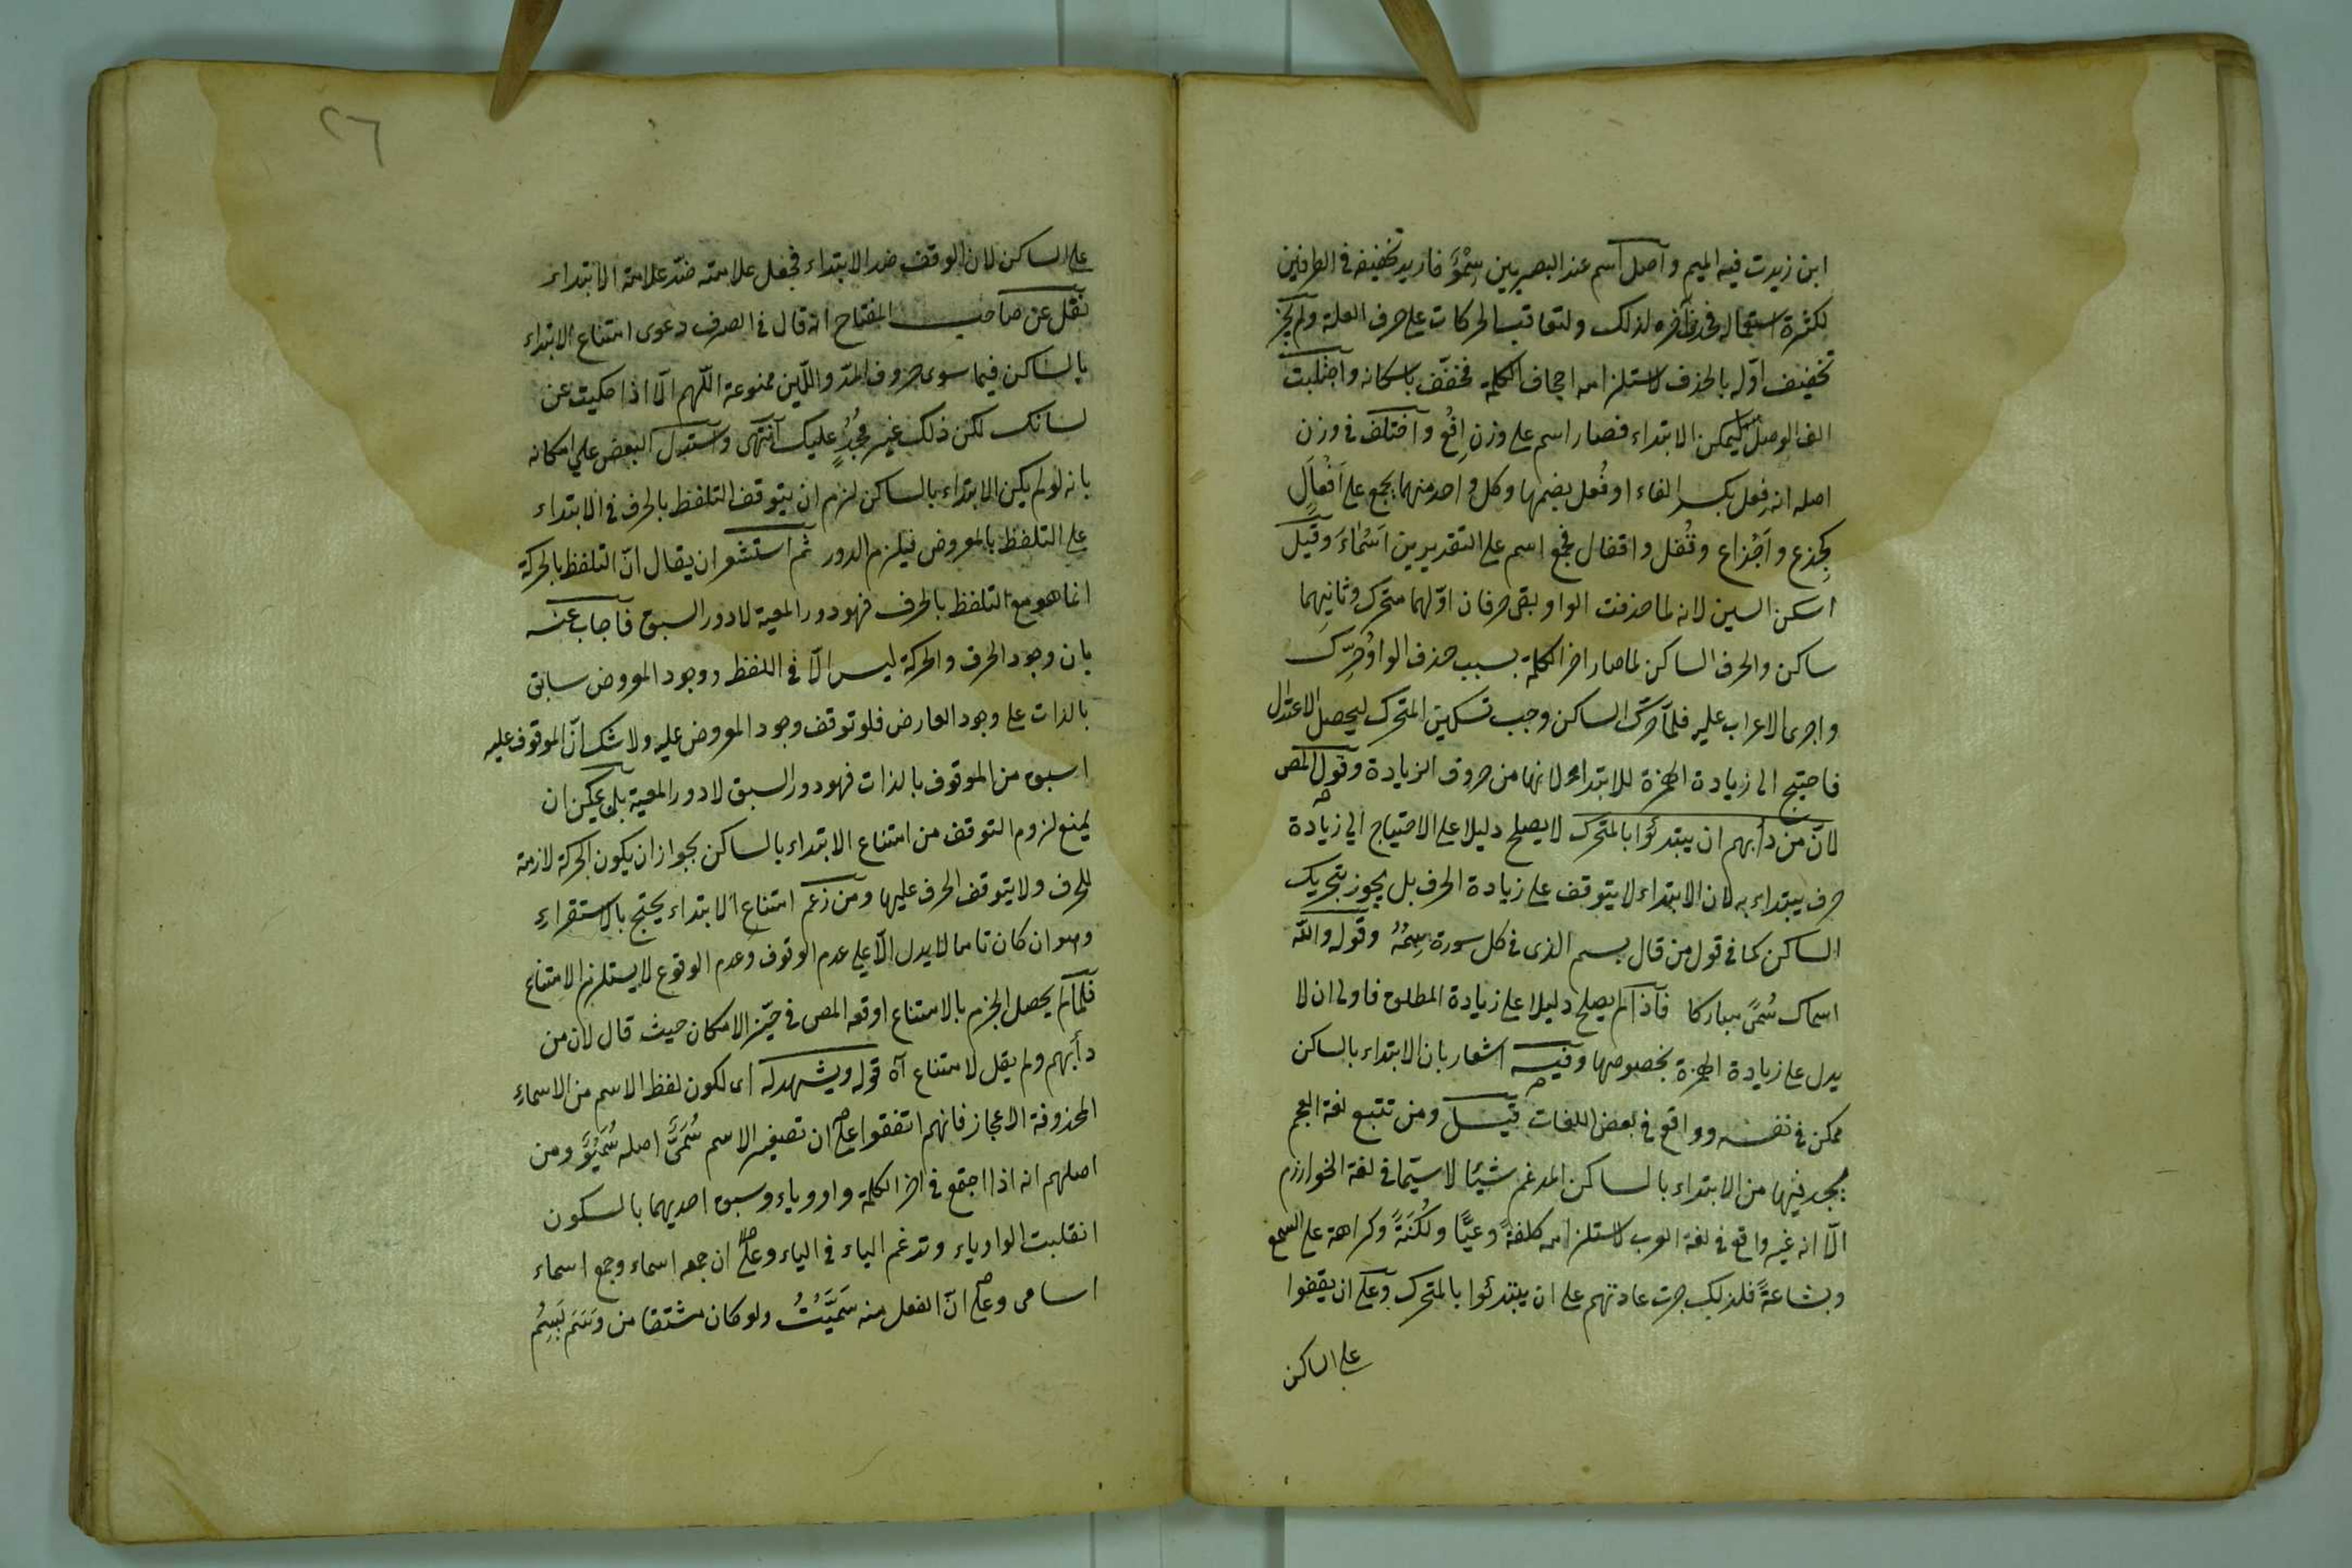 ابن زيدت فيه الميم وآصل اسم عند البصريين سِمْوٌ فاريد تخفيفه في الطرفين
لكثرة استعماله فحذف آخره لذلك ولتعاقب الحركات على حرف العلة ولم يجز
تخفيف اوّله بالحذف لاستلزامه اجحاف الكلمة فخفّف باسكانه واجتلبت
الف الوصل ليمكن الابتداء فصار اسم على وزن اِفْعٌ وآختلف في وزن
اصله انه فِعل بكسر الفاء او فُعل بضمها وكل واحد منهما يجمع على اَفْعَالٍ
كجِذع واَجْزاع وقُفل واقفال فجمع اسم على التقديرين اَسْمَاءٌ وقيل
اسكن السين لانه لما حذفت الواو بقى حرفان اوّلهما متحرك وثانيهما
ساكن والحرف الساكن لما صار اخر الكلمة بسبب حذف الواو حُرِّك
واجرى الاعراب عليه فلمّا حرّك الساكن وجب تسكين المتحرك ليحصل الاعتدال
فاحتيج الى زيادة الهمزة للابتداء لانها من حروف الزيادة وقول المص
لانّ من دأبهم ان يبتدئوا بالمتحرك لا يصلح دليلا على الاحتياج الى زيادة
حرف يبتداء به لان الابتداء لا يتوقف على زيادة الحرف بل يجوز بتحريك
الساكن كما في قول من قال بسم الذى في كل سورة سِمُهُ وقوله والله
اسماك سُمًى مباركا فآذا لم يصلح دليلا على زيادة المطلق فاولى ان لا
يدل على زيادة الهمزة بخصوصها وفيه اشعار بان الابتداء بالساكن
ممكن في نفسه وواقع في بعض اللغات قيل ومن تتبع لغة العجم
يجد فيها من الابتداء بالساكن المدغم شيئا لا سيّما في لغة الخوارزم
الّا انه غير واقع في لغة العرب لاستلزامه كلفةً وعيًّا ولُكْنَةً وكراهة على السمع
وبشاعةً فلذلك جرت عادتهم على ان يبتدئوا بالمتحرك وعلى ان يقفوا
على الساكن
٢٦
على الساكن لان الوقف ضد الابتداء فجعل علامته ضدّ علامة الابتداء
نقل عن صاحب المفتاح انه قال في الصرف دعوى امتناع الابتداء
بالساكن فيما سوى حروف المدّ واللّين ممنوعة اللّهم الّا اذا حكيت عن
لسانك لكن ذلك غير مُجْدٍ عليك آنتهى واستدل البعض على امكانه
بانه لو لم يكن الابتداء بالساكن لزم ان يتوقف التلفظ بالحرف في الابتداء
على التلفظ بالمعروض فيلزم الدور ثم استشعر ان يقال انّ التلفظ بالحركة
انما هو مع التلفظ بالحرف فهو دور المعية لا دور السبق فآجاب عنه
بان وجود الحرف والحركة ليس الّا في اللفظ ووجود المعروض سابق
بالذات على وجود العارض فلو توقف وجود المعروض عليه ولا شك انّ الموقوف عليه
اسبق من الموقوف بالذات فهو دور السبق لا دور المعية بل يمكن ان
يمنع لزوم التوقف من امتناع الابتداء بالساكن بجواز ان يكون الحركة لازمة
للحرف ولا يتوقف الحرف عليها ومن زعم امتناع الابتداء يحتج بالاستقراء
وهو ان كان تاما لا يدل الّا على عدم الوقوف وعدم الوقوع لا يستلزم الامتناع
فلمّا لم يحصل الجزم بالامتناع اوقعه المص في حيّز الامكان حيث قال لان من
دأبهم ولم يقل لامتناع آه قوله ويشهد له اى لكون لفظ الاسم من الاسماء
المحذوفة الاعجاز فانهم اتفقوا على ان تصغير الاسم سُمَىٌّ اصله سُمَيْوٌ ومن
اصلهم انه اذا اجتمع في اخر الكلمة واو وياء وسبق احديهما بالسكون
انقلبت الواو ياء وتدغم الياء في الياء وعلى ان جمعه اسماء وجمع اسماء
اسامى وعلى انّ الفعل منه سَمَّيْتُ ولو كان مشتقا من وَسَمَ يَسِمُ